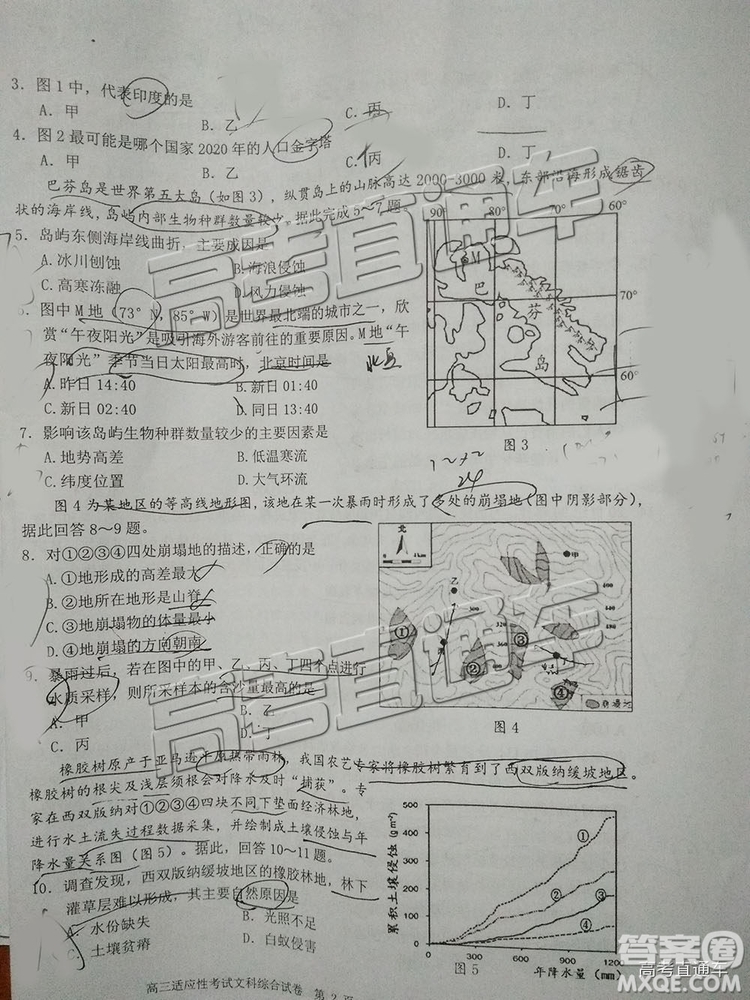 3. 图1中，代表印度的是
A. 甲 B. 乙 C. 丙 D. 丁
4. 图2最可能是哪个国家2020年的人口金字塔
A. 甲 B. 乙 C. 丙 D. 丁
巴芬岛是世界第五大岛（如图3），纵贯岛上的山脉高达2000-3000米，东部沿海形成锯齿
状的海岸线，岛屿内部生物种群数量较少。据此完成5～7题。
5. 岛屿东侧海岸线曲折，主要成因是
A.冰川刨蚀 B.海浪侵蚀
C.高寒冻融 D.风力侵蚀
图中M地（73°N，85°W）是世界最北端的城市之一，欣
赏“午夜阳光”是吸引海外游客前往的重要原因。M地“午
夜阳光”季节当日太阳最高时，北京时间是
A.昨日14:40 B.新日01:40
C.新日02:40 D.同日13:40
7. 影响该岛屿生物种群数量较少的主要因素是
A.地势高差 B.低温寒流
C.纬度位置 D.大气环流
90° 80° 70° 60°
M
巴
芬
岛
70°
60°
图3
图4为某地区的等高线地形图，该地在某一次暴雨时形成了多处的崩塌地（图中阴影部分），
据此回答8～9题。
8. 对①②③④四处崩塌地的描述，正确的是
A.①地形成的高差最大
B.②地所在地形是山脊
C.③地崩塌物的体量最少
D.④地崩塌的方向朝南
9. 暴雨过后，若在图中的甲、乙、丙、丁四个点进行
水质采样，则所采样本的含沙量最高的是
A. 甲 B. 乙
C. 丙 D. 丁
北
甲
乙
①
②
③
④
图4
橡胶树原产于亚马逊平原热带雨林，我国农艺专家将橡胶树繁育到了西双版纳缓坡地区。
橡胶树的根尖及浅层须根会对降水及时“捕获”。专
家在西双版纳对①②③④四块不同下垫面经济林地，
进行水土流失过程数据采集，并绘制成土壤侵蚀与年
降水量关系图（图5）。据此，回答10～11题。
10. 调查发现，西双版纳缓坡地区的橡胶林地，林下
灌草层难以形成，其主要自然原因是
A. 水份缺失 B. 光照不足
C. 土壤贫瘠 D. 白蚁侵害
累积土壤侵蚀（gm⁻²）
500
400
300
200
100
0
①
②
③
④
0 300 600 900 1200
图5 年降水量（mm）
高三适应性考试文科综合试卷 第2页
高考直通车
高考直通车
答案圈
MXQE.COM
高考直通车